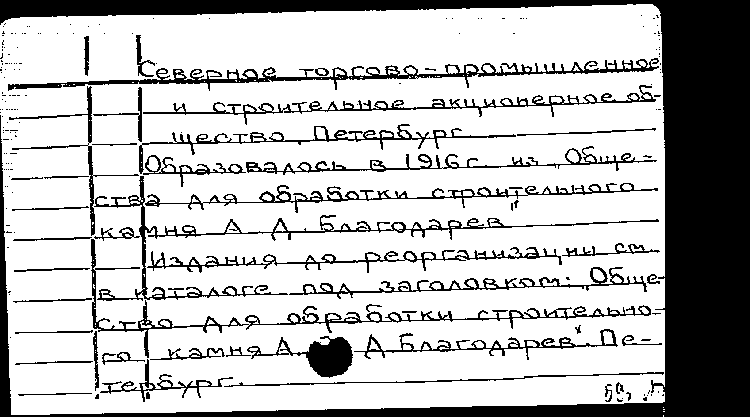 Северное торгово-промышленное
и строительное акционерное об-
щество, Петербург
Образовалось в 1916 г из „Обще-
ства для обработки строительного
камня А Д. Благодарев"
Издания до реорганизации см.
в каталоге под заголовком: „Обще-
ство для обработки строительно-
го камня А. Д. Благодарев". Пе-
тербург.